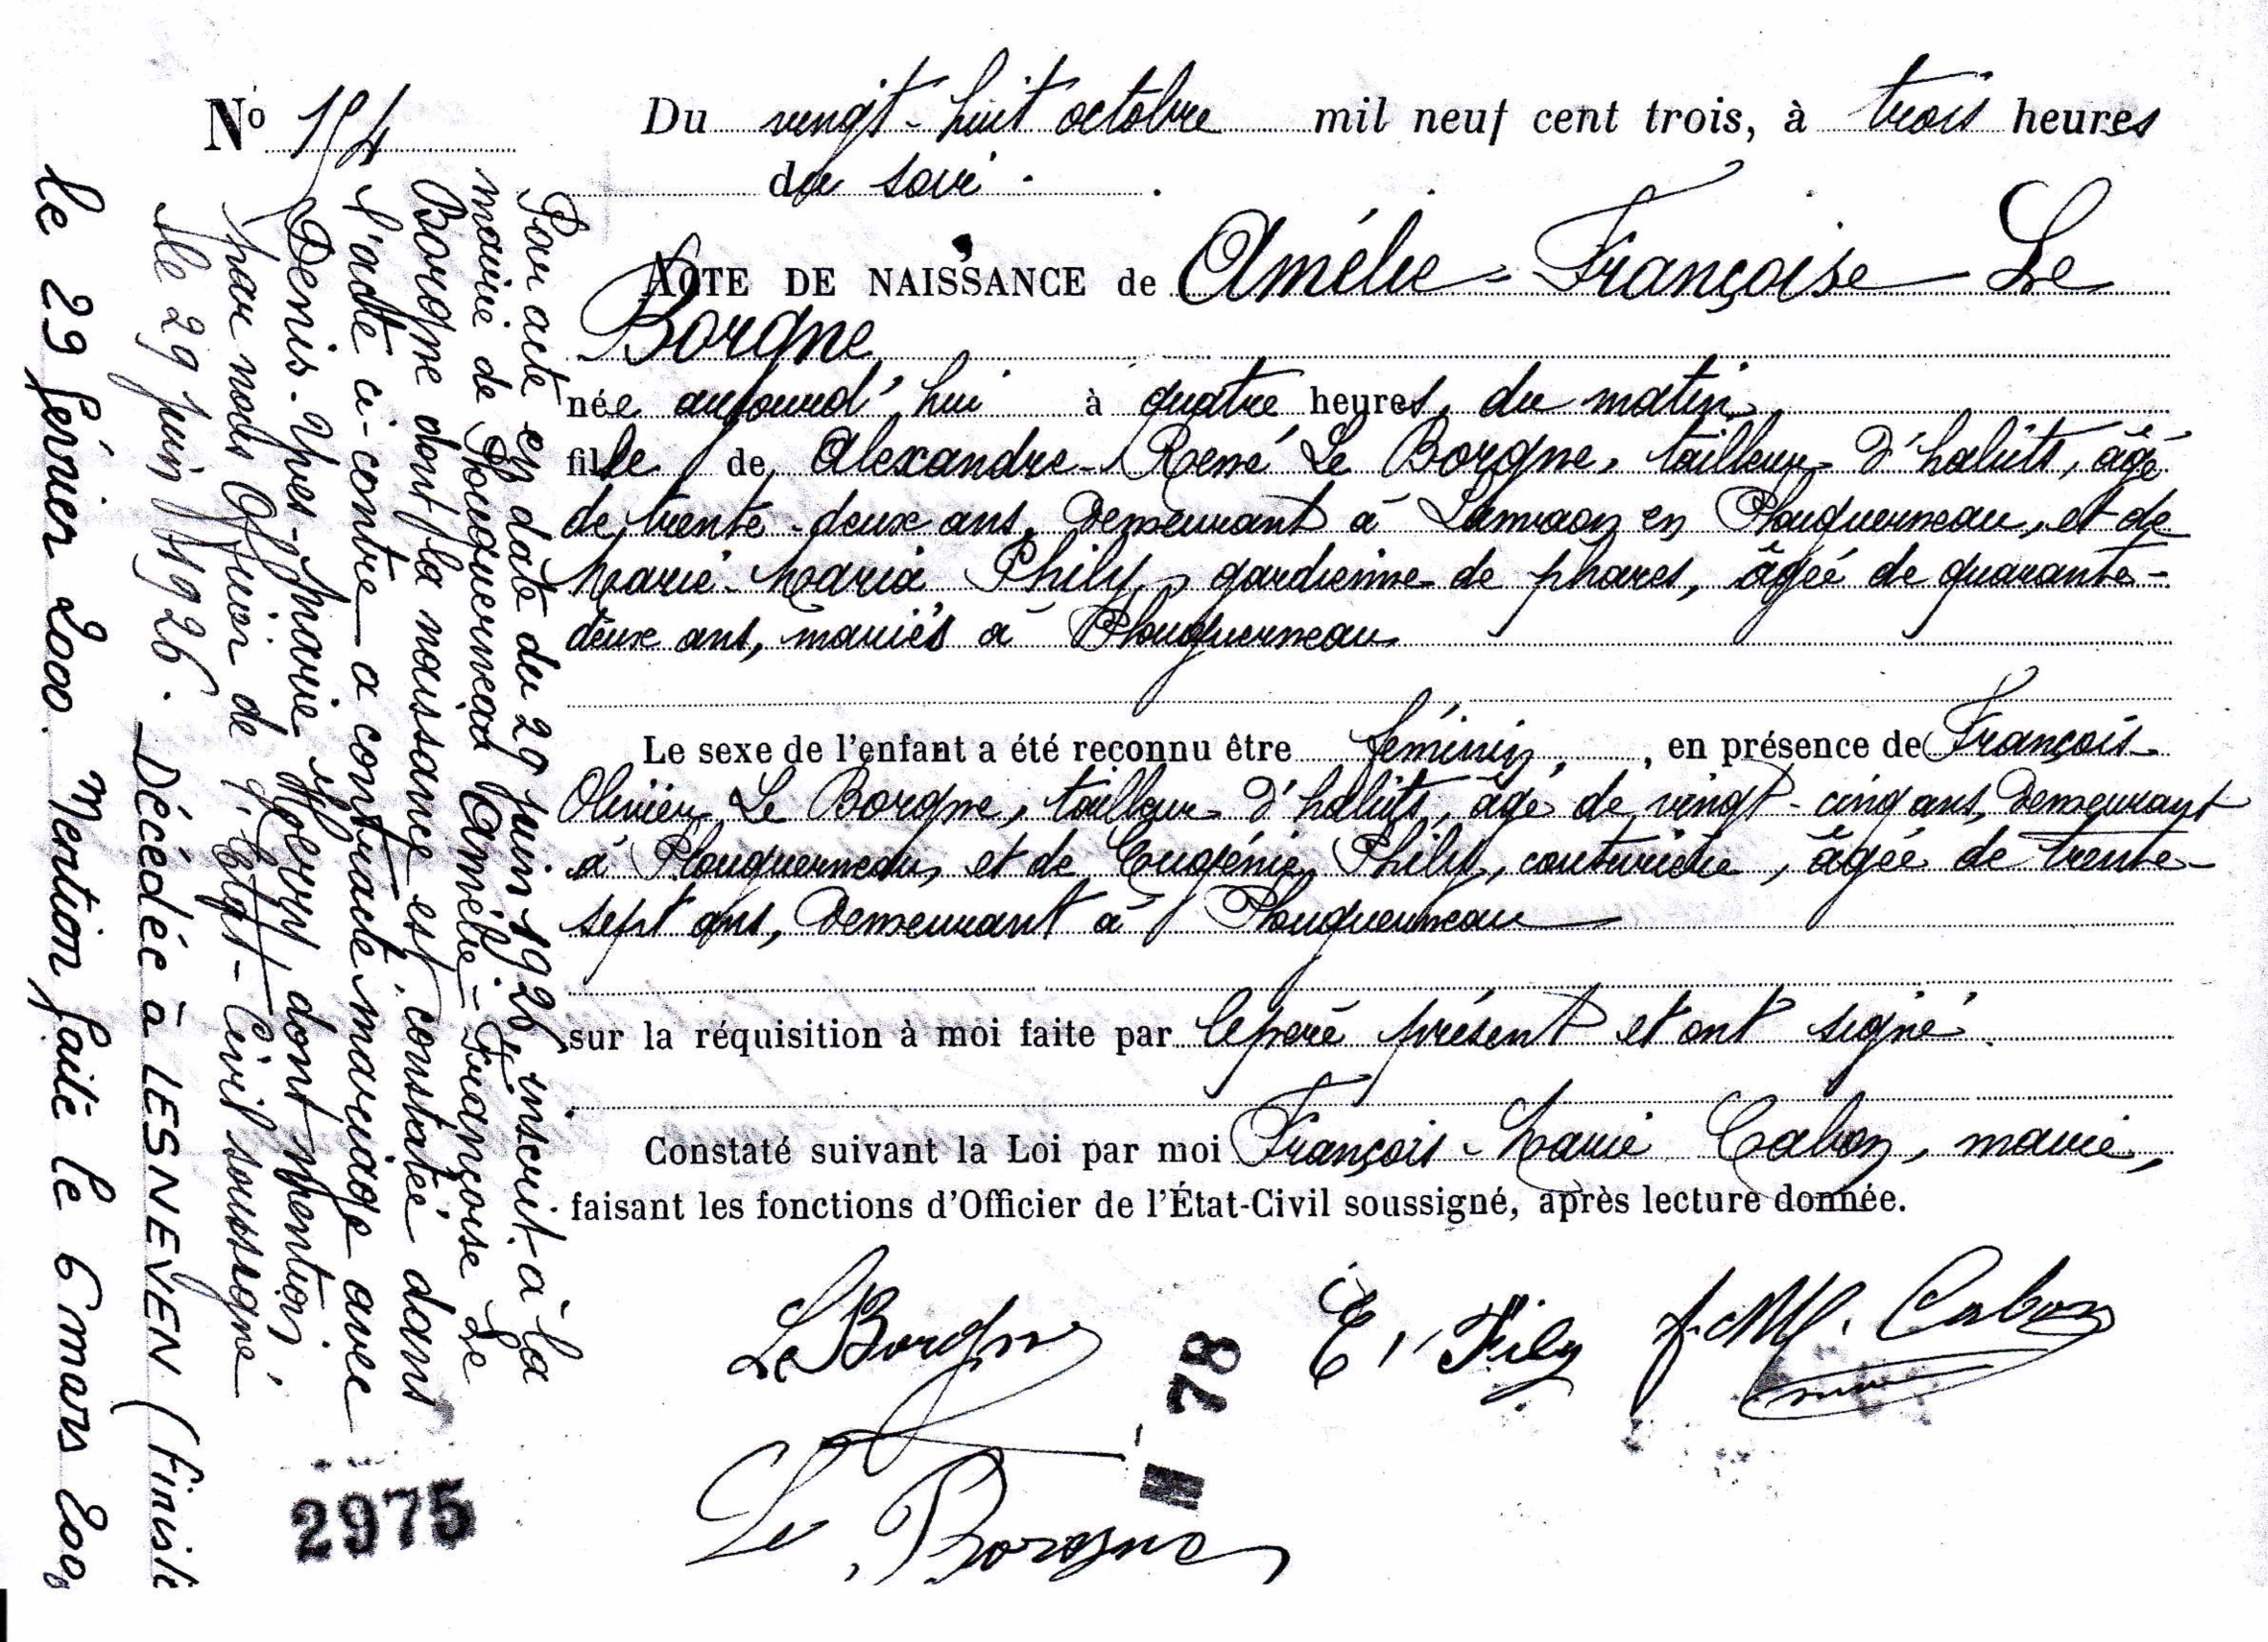 Nº 154
Du vingt-huit octobre mil neuf cent trois, à trois heures
du soir.
ACTE DE NAISSANCE de Amélie-Françoise Le
Borgne
née aujourd'hui à quatre heures du matin,
fille de Alexandre-René Le Borgne, tailleur d'habits, âgé
de trente-deux ans, demeurant à en Plouguerneau, et de
Marie-Maria Phily, gardienne de phares, âgée de quarante-
deux ans, mariés à Plouguerneau
Le sexe de l'enfant a été reconnu être féminin, , en présence de François-
Olivier Le Borgne, tailleur d'habits, âgé de vingt-cinq ans, demeurant
à Plouguerneau, et de Eugénie Phily, couturière, âgée de trente-
sept ans, demeurant à Plouguerneau
sur la réquisition à moi faite par le père présent et ont signé.
Constaté suivant la Loi par moi François-Marie Cabon, maire,
faisant les fonctions d'Officier de l'État-Civil soussigné, après lecture donnée.
Le Borgne
E. Fily
f. M. Cabon
Le Borgne
78
2975
Par acte en date du 29 juin 1926 inscrit à la
mairie de Plouguerneau Amélie-Françoise Le
Borgne dont la naissance est constatée dans
l'acte ci-contre a contracté mariage avec
Denis-Yves-Marie dont mention
par nous Officier de l'État-Civil soussigné
Le 29 juin 1926. Décédée à LESNEVEN (Finistè
le 29 février 2000. Mention faite le 6 mars 2000